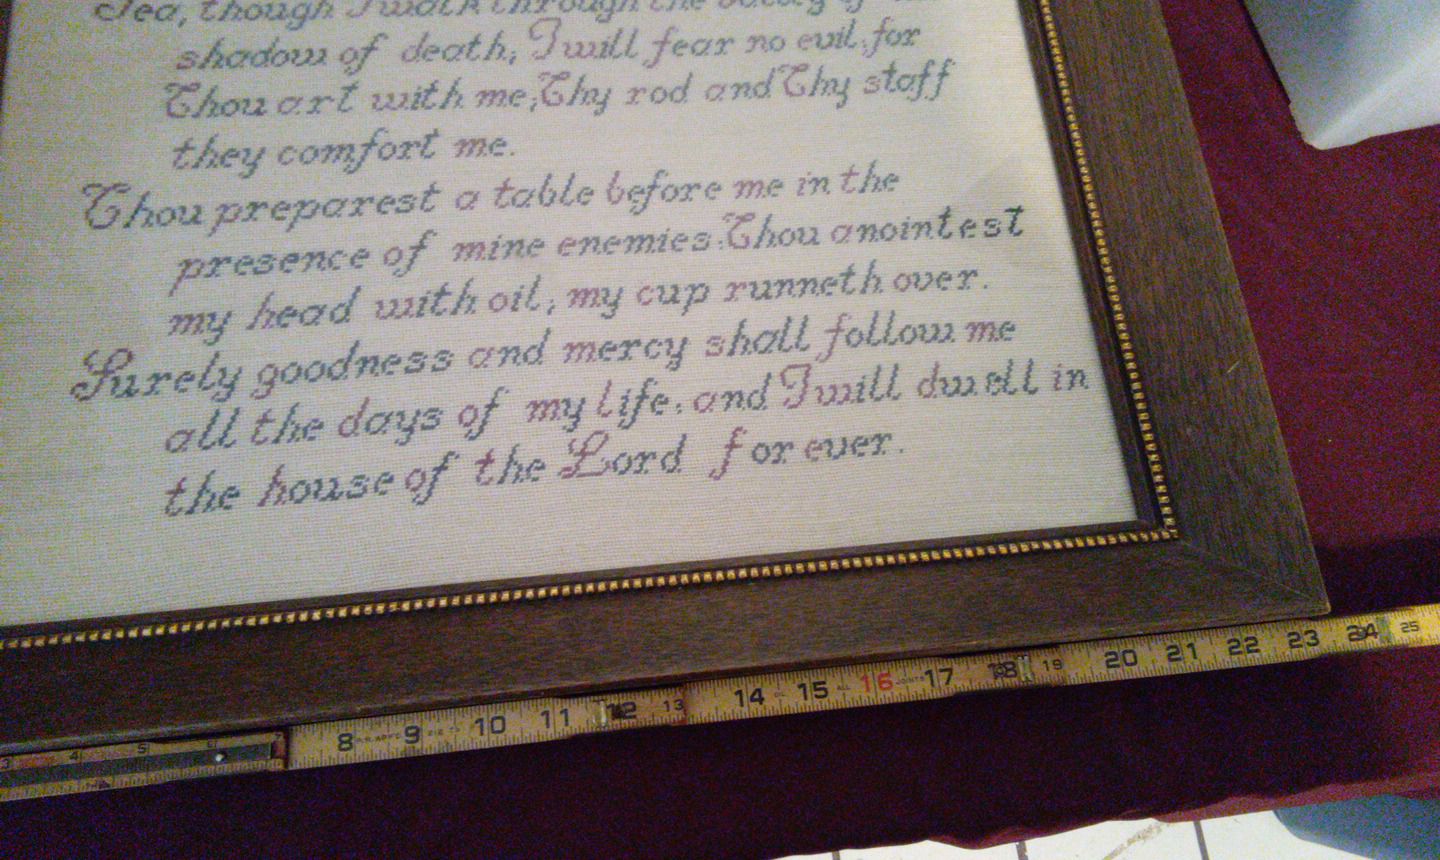 Yea, though I walk through the valley of the
shadow of death, I will fear no evil, for
Thou art with me; Thy rod and Thy staff
they comfort me.
Thou preparest a table before me in the
presence of mine enemies: Thou anointest
my head with oil; my cup runneth over.
Surely goodness and mercy shall follow me
all the days of my life: and I will dwell in
the house of the Lord for ever.
3 4 5 6 7 8 9 10 11 12 13 14 15 16 17 18 19 20 21 22 23 24 25